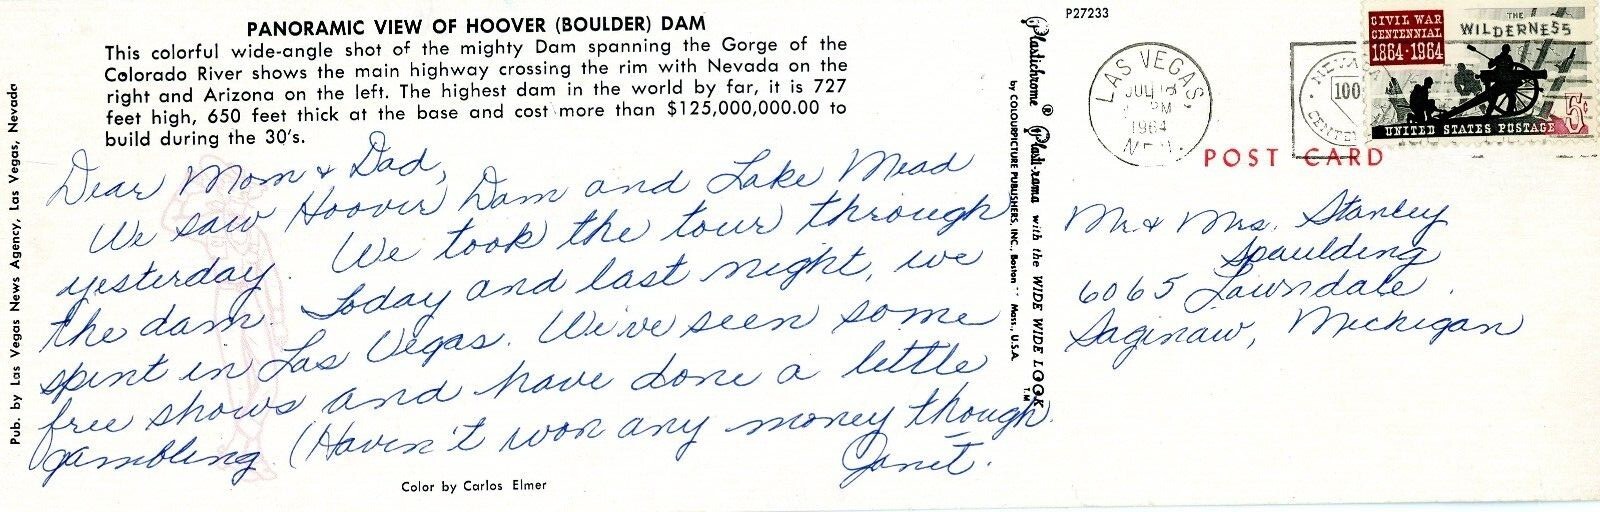 PANORAMIC VIEW OF HOOVER (BOULDER) DAM
This colorful wide-angle shot of the mighty Dam spanning the Gorge of the
Colorado River shows the main highway crossing the rim with Nevada on the
right and Arizona on the left. The highest dam in the world by far, it is 727
feet high, 650 feet thick at the base and cost more than $125,000,000.00 to
build during the 30's.
Dear Mom & Dad,
We saw Hoover Dam and Lake Mead
yesterday. We took the tour through
the dam. Today and last night, we
spent in Las Vegas. We've seen some
free shows and have done a little
gambling (Haven't won any money though.
Janet.
Color by Carlos Elmer
Pub. by Las Vegas News Agency, Las Vegas, Nevada
Plastichrome ® by COLOURPICTURE PUBLISHERS, INC., Boston Mass., U.S.A.
Plasti-rama with the WIDE WIDE LOOK T.M
P27233
LAS VEGAS,
JUL
PM
1964
NEV.
NEVADA
100
CENTE
CIVIL WAR
CENTENNIAL
1864-1964
THE
WILDERNESS
5¢
UNITED STATES POSTAGE
POST CARD
Mr. & Mrs. Stanley
Spaulding
6065 Lawndale.
Saginaw, Michigan